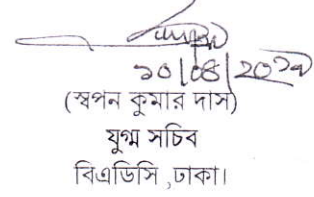 ১০/০৪/২০১৯
(স্বপন কুমার দাস)
যুগ্ম সচিব
বিএডিসি ,ঢাকা।